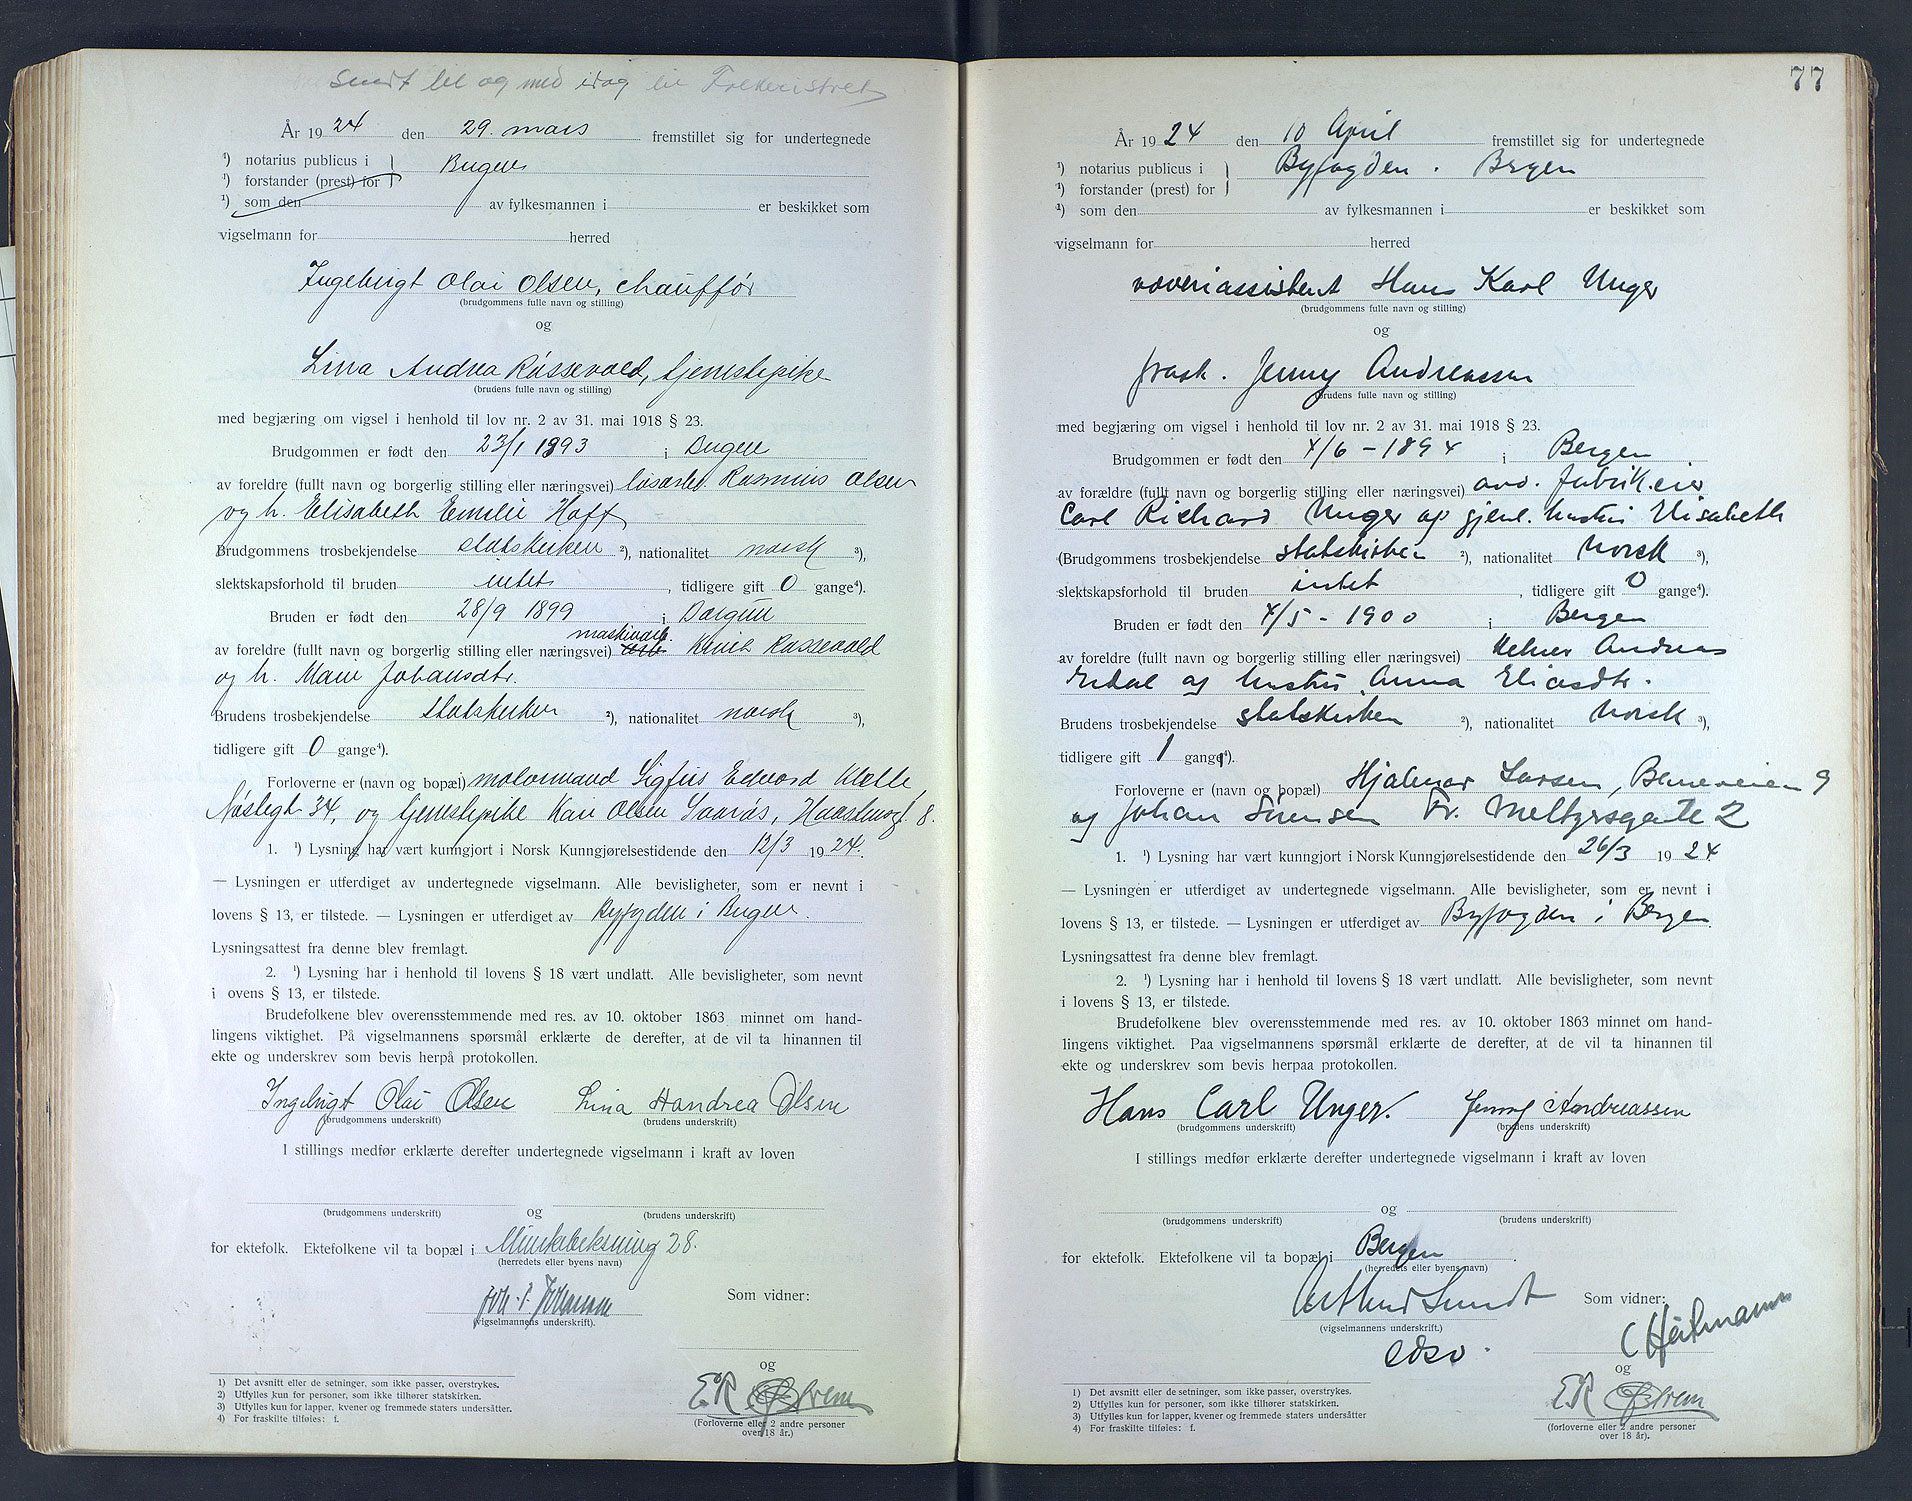 Sendt til og med idag til Folkeregistret
År 1924 den 29. mars fremstillet sig for undertegnede
¹) notarius publicus i } Bergen
¹) forstander (prest) for
¹) som den av fylkesmannen i er beskikket som
vigselmann for herred
Ingebrigt Olai Olsen, chauffør
(brudgommens fulle navn og stilling)
og
Lina Andrea Rossevold, tjenestepike
(brudens fulle navn og stilling)
med begjæring om vigsel i henhold til lov nr. 2 av 31. mai 1918 § 23.
Brudgommen er født den 23/1 1893 i Bergen
av foreldre (fullt navn og borgerlig stilling eller næringsvei) løsarb. Rasmus Olsen
og h. Elisabeth Emilie Hoff
Brudgommens trosbekjendelse statskirken ²), nationalitet norsk ³),
slektskapsforhold til bruden intet, tidligere gift 0 gange⁴).
Bruden er født den 28/9 1899 i
maskinarb.
av foreldre (fullt navn og borgerlig stilling eller næringsvei) arb. Knut Rossevold
og h. Marie Johansdtr.
Brudens trosbekjendelse statskirken ²), nationalitet norsk ³),
tidligere gift 0 gange⁴).
Forloverne er (navn og bopæl) motormand Sigfus Edvard Klette
34, og tjenestepike Kari Olsen 8.
1. ¹) Lysning har vært kunngjort i Norsk Kunngjørelsestidende den 12/3 1924.
— Lysningen er utferdiget av undertegnede vigselmann. Alle bevisligheter, som er nevnt i
lovens § 13, er tilstede. — Lysningen er utferdiget av Byfogden i Bergen.
Lysningsattest fra denne blev fremlagt.
2. ¹) Lysning har i henhold til lovens § 18 vært undlatt. Alle bevisligheter, som nevnt
i ovens § 13, er tilstede.
Brudefolkene blev overensstemmende med res. av 10. oktober 1863 minnet om hand-
lingens viktighet. På vigselmannens spørsmål erklærte de derefter, at de vil ta hinannen til
ekte og underskrev som bevis herpå protokollen.
Ingebrigt Olai Olsen Lina Handrea Olsen
(brudgommens underskrift) (brudens underskrift)
I stillings medfør erklærte derefter undertegnede vigselmann i kraft av loven
og
(brudgommens underskrift) (brudens underskrift)
for ektefolk. Ektefolkene vil ta bopæl i 28.
(herredets eller byens navn)
Som vidner:
(vigselmannens underskrift).
og
E R Østrem
(Forloverne eller 2 andre personer
over 18 år.)
1) Det avsnitt eller de setninger, som ikke passer, overstrykes.
2) Utfylles kun for personer, som ikke tilhører statskirken.
3) Utfylles kun for lapper, kvener og fremmede staters undersåtter.
4) For fraskilte tilføies: f.
77
År 1924 den 10 April fremstillet sig for undertegnede
¹) notarius publicus i } Byfogden. Bergen
¹) forstander (prest) for
¹) som den av fylkesmannen i er beskikket som
vigselmann for herred
væveriassistent Hans Karl Unger
(brudgommens fulle navn og stilling)
og
frask. Jenny Andreassen
(brudens fulle navn og stilling)
med begjæring om vigsel i henhold til lov nr. 2 av 31. mai 1918 § 23.
Brudgommen er født den 4/6 - 1894 i Bergen
av forældre (fullt navn og borgerlig stilling eller næringsvei) avd. fabrikeier
Carl Richard Unger og gjenl. hustru Elisabeth
(Brudgommens trosbekjendelse statskirken ²), nationalitet norsk ³),
slektskapsforhold til bruden intet, tidligere gift 0 gange⁴).
Bruden er født den 4/5 - 1900 i Bergen
av foreldre (fullt navn og borgerlig stilling eller næringsvei) Helmer Andreas
og hustru Anna Eliasdtr.
Brudens trosbekjendelse statskirken ²), nationalitet norsk ³),
tidligere gift 1 gang⁴).
Forloverne er (navn og bopæl) Hjalmar Larsen, 9
og Johan Sørensen Fr. Meltzersgate 2
1. ¹) Lysning har vært kunngjort i Norsk Kunngjørelsestidende den 26/3 1924
— Lysningen er utferdiget av undertegnede vigselmann. Alle bevisligheter, som er nevnt i
lovens § 13, er tilstede. — Lysningen er utferdiget av Byfogden i Bergen.
Lysningsattest fra denne blev fremlagt.
2. ¹) Lysning har i henhold til lovens § 18 vært undlatt. Alle bevisligheter, som nevnt
i lovens § 13, er tilstede.
Brudefolkene blev overensstemmende med res. av 10. oktober 1863 minnet om hand-
lingens viktighet. Paa vigselmannens spørsmål erklærte de derefter, at de vil ta hinannen til
ekte og underskrev som bevis herpaa protokollen.
Hans Carl Unger. Jenny Andreassen
(brudgommens underskrift) (brudens underskrift)
I stillings medfør erklærte derefter undertegnede vigselmann i kraft av loven
og
(brudgommens underskrift) (brudens underskrift)
for ektefolk. Ektefolkene vil ta bopæl i Bergen.
(herredets eller byens navn)
Arthur Sundt Som vidner:
(vigselmannens underskrift.)
edsv. C Heitmann
og
E R Østrem
(forloverne eller 2 andre personer
over 18 år).
1) Det avsnitt eller de setninger, som ikke passer, overstrykes.
2) Utfylles kun for personer, som ikke tilhører statskirken.
3) Utfylles kun for lapper, kvener og fremmede staters undersåtter
4) For fraskilte tilføies: f.